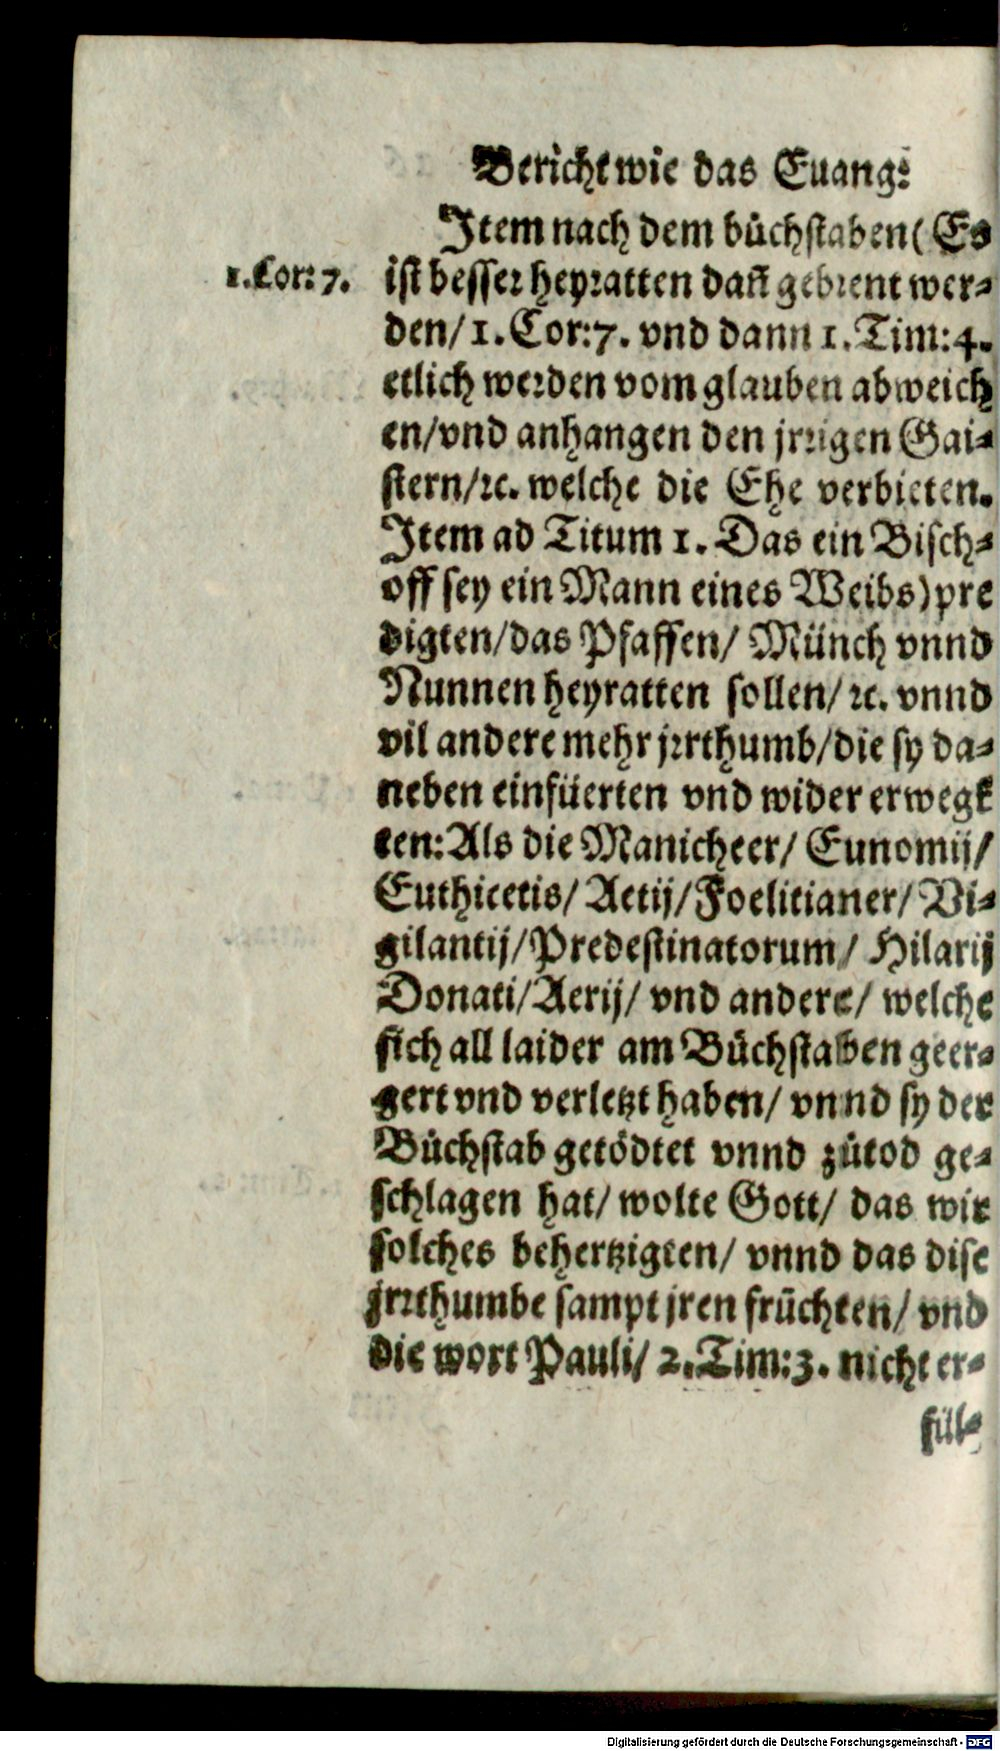 Bericht wie das Euang:
Item nach dem bůchstaben (Es
1.Cor: 7.
ist besser heyratten dañ gebrent wer⸗
den/ 1. Cor: 7. vnd dann 1. Tim: 4.
etlich werden vom glauben abweich
en/ vnd anhangen den jrrigen Gai⸗
stern/ ꝛc. welche die Ehe verbieten.
Item ad Titum 1. Das ein Bisch⸗
off sey ein Mann eines Weibs) pre
digten/ das Pfaffen/ Münch vnnd
Nunnen heyratten sollen/ ꝛc. vnnd
vil andere mehr jrrthumb/ die sy da⸗
neben einfüerten vnd wider erwegk
ten: Als die Manicheer/ Eunomij/
Euthicetis/ Aetij/ Foelitianer/ Vi⸗
gilantij/ Predestinatorum/ Hilarij
Donati/ Aerij/ vnd andere/ welche
sich all laider am Bůchstaben geer⸗
gert vnd verletzt haben/ vnnd sy der
Bůchstab getödtet vnnd zůtod ge⸗
schlagen hat/ wolte Gott/ das wir
solches behertzigten/ vnnd das dise
jrrthumbe sampt jren früchten/ vnd
die wort Pauli/ 2. Tim: 3. nicht er⸗
fül⸗
Digitalisierung gefördert durch die Deutsche Forschungsgemeinschaft - DFG